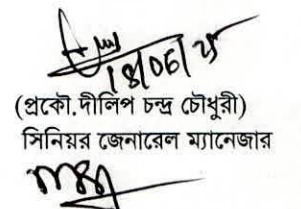 (প্রকৌ.দীলিপ চন্দ্র চৌধুরী)
সিনিয়র জেনারেল ম্যানেজার